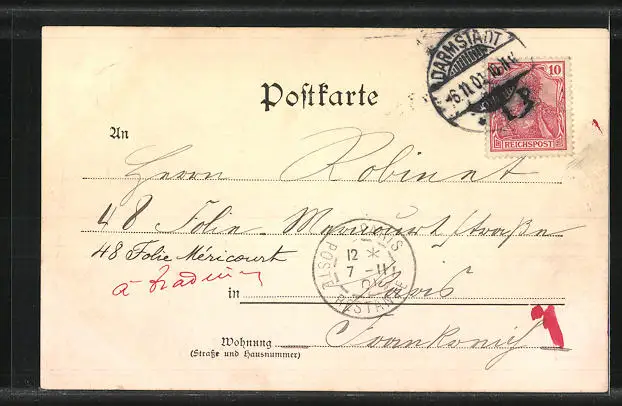 Postkarte
DARMSTADT 1
6.11.01.10-11V.
10
REICHSPOST
An
Herrn Robinet
48 Folie Mericourt straße
48 Folie Méricourt
à traduire
in Paris
PARIS
12
7 -11
POSTE RESTANTE
Wohnung
(Straße und Hausnummer)
Frankreich